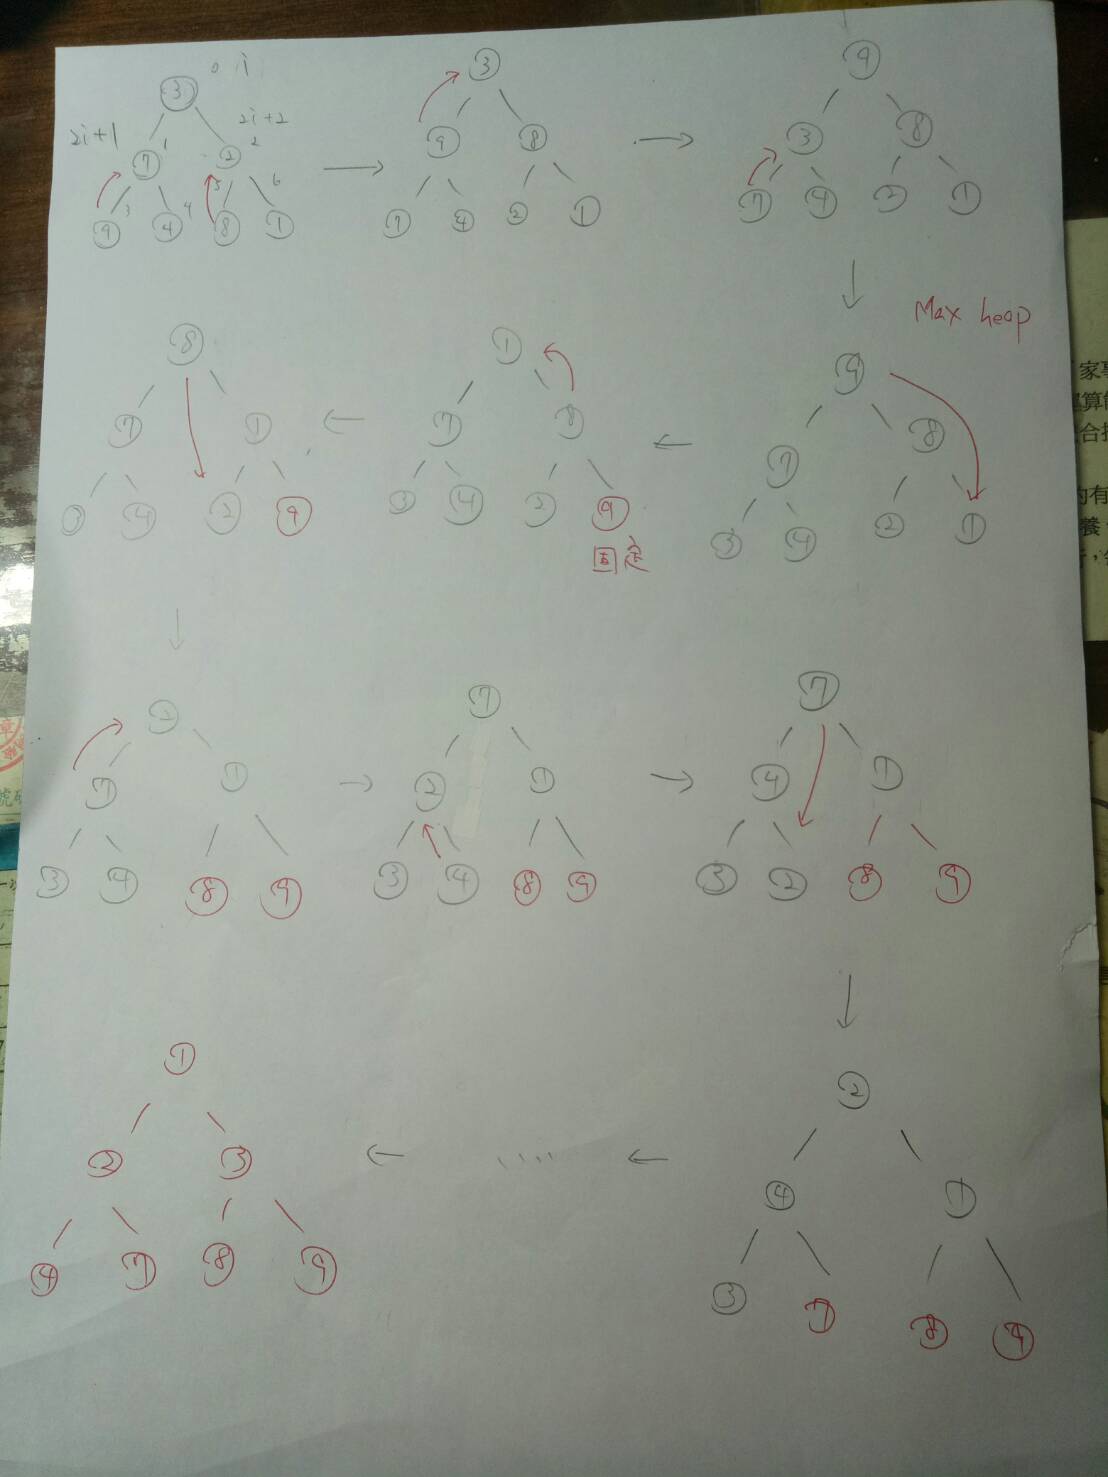 0 i
③
2i+1 2i+2
1 2
⑦ ②
3 4 5 6
⑨ ④ ⑧ ①
③
⑨ ⑧
⑦ ④ ② ①
⑨
③ ⑧
⑦ ④ ② ①
Max heap
⑨
⑦ ⑧
③ ④ ② ①
①
⑦ ⑧
③ ④ ② ⑨
固定
⑧
⑦ ①
③ ④ ② ⑨
②
⑦ ①
③ ④ ⑧ ⑨
⑦
② ①
③ ④ ⑧ ⑨
⑦
④ ①
③ ② ⑧ ⑨
②
④ ①
③ ⑦ ⑧ ⑨
.....
①
② ③
④ ⑦ ⑧ ⑨
家
算
合
內有
養